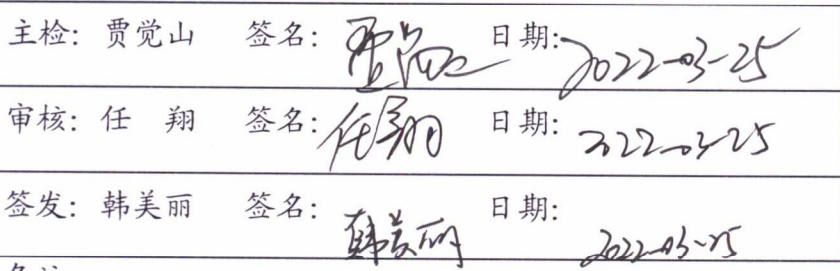 主检: 贾觉山 签名: 贾觉山 日期: 2022-03-25
审核: 任 翔 签名: 任翔 日期: 2022-03-25
签发: 韩美丽 签名: 韩美丽 日期: 2022-03-25